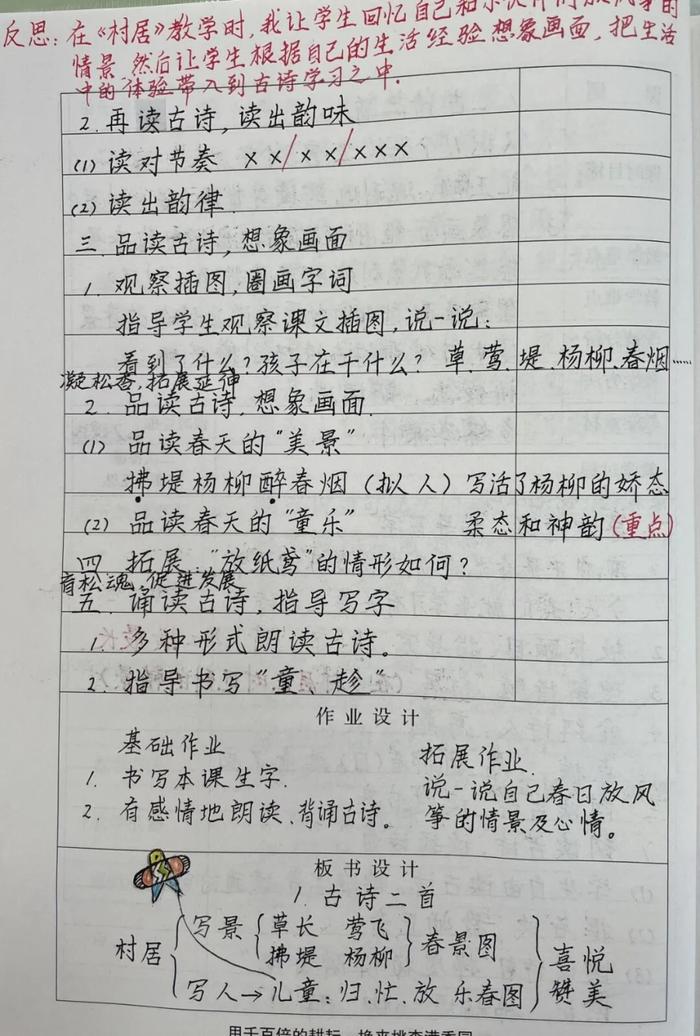 反思：在《村居》教学时，我让学生回忆自己和小伙伴们放风筝的
情景，然后让学生根据自己的生活经验想象画面，把生活
中的体验带入到古诗学习之中.
2.再读古诗，读出韵味
(1) 读对节奏 ××/××/×××
(2) 读出韵律.
三.品读古诗，想象画面
1.观察插图，圈画字词
指导学生观察课文插图，说一说：
看到了什么？孩子在干什么？草、莺、堤、杨柳、春烟……
凝松香，拓展延伸
2.品读古诗，想象画面.
(1) 品读春天的“美景”
拂堤杨柳醉春烟（拟人）写活了杨柳的娇态
(2) 品读春天的“童乐” 柔态和神韵(重点)
四 拓展：“放纸鸢”的情形如何？
育松魂，促进发展
五.诵读古诗，指导写字
1.多种形式朗读古诗。
2.指导书写“童、趁”
作业设计
基础作业
1.书写本课生字.
2.有感情地朗读、背诵古诗。
拓展作业.
说一说自己春日放风
筝的情景及心情。
板书设计
1.古诗二首
村居
写景 草长 莺飞
拂堤 杨柳 春景图
写人→儿童：归、忙、放 乐春图
喜悦
赞美
用千百倍的耕耘，换来桃李满香园